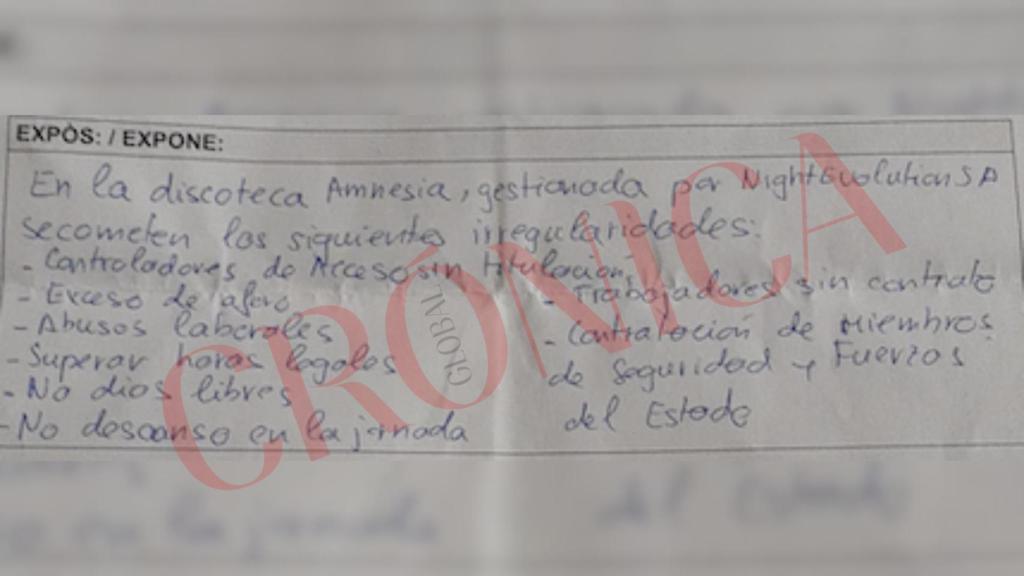 EXPÒS: / EXPONE:
En la discoteca Amnesia, gestionada por NightEvolution SA
se cometen las siguientes irregularidades:
- Controladores de Acceso sin titulación
- Exceso de aforo
- Abusos laborales
- Superar horas legales
- No días libres
- No descanso en la jornada
- Trabajadores sin contrato
- Contratación de Miembros
de Seguridad y Fuerzas
del Estado
CRÓNICA
GLOBAL